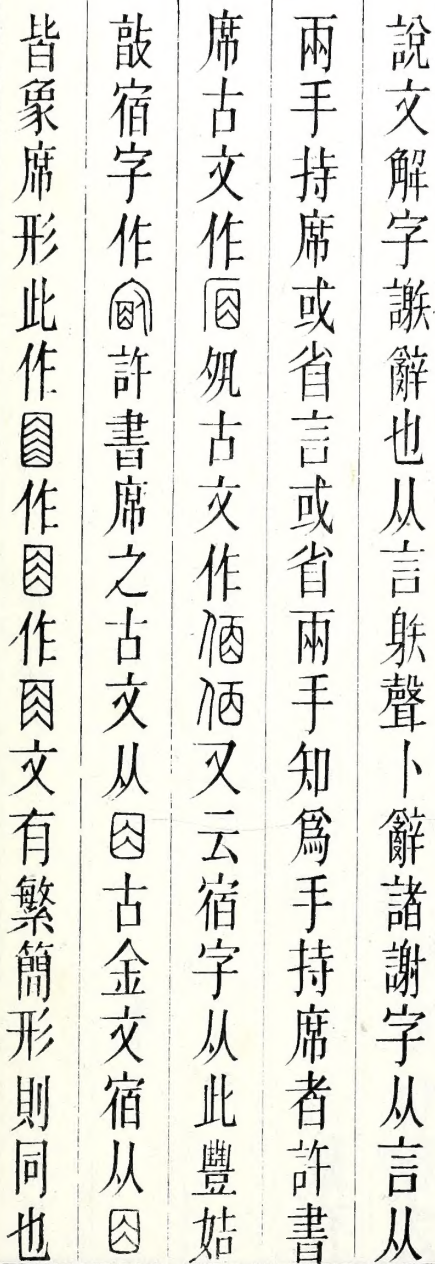 說文解字辭也从言䠶聲卜辭諸謝字从言从
兩手持席或省言或省兩手知爲手持席者許書
席古文作𡖊古文作又云宿字从此豐姞
宿字作許書席之古文从古金文宿从
皆象席形此作作作文有繁簡形則同也